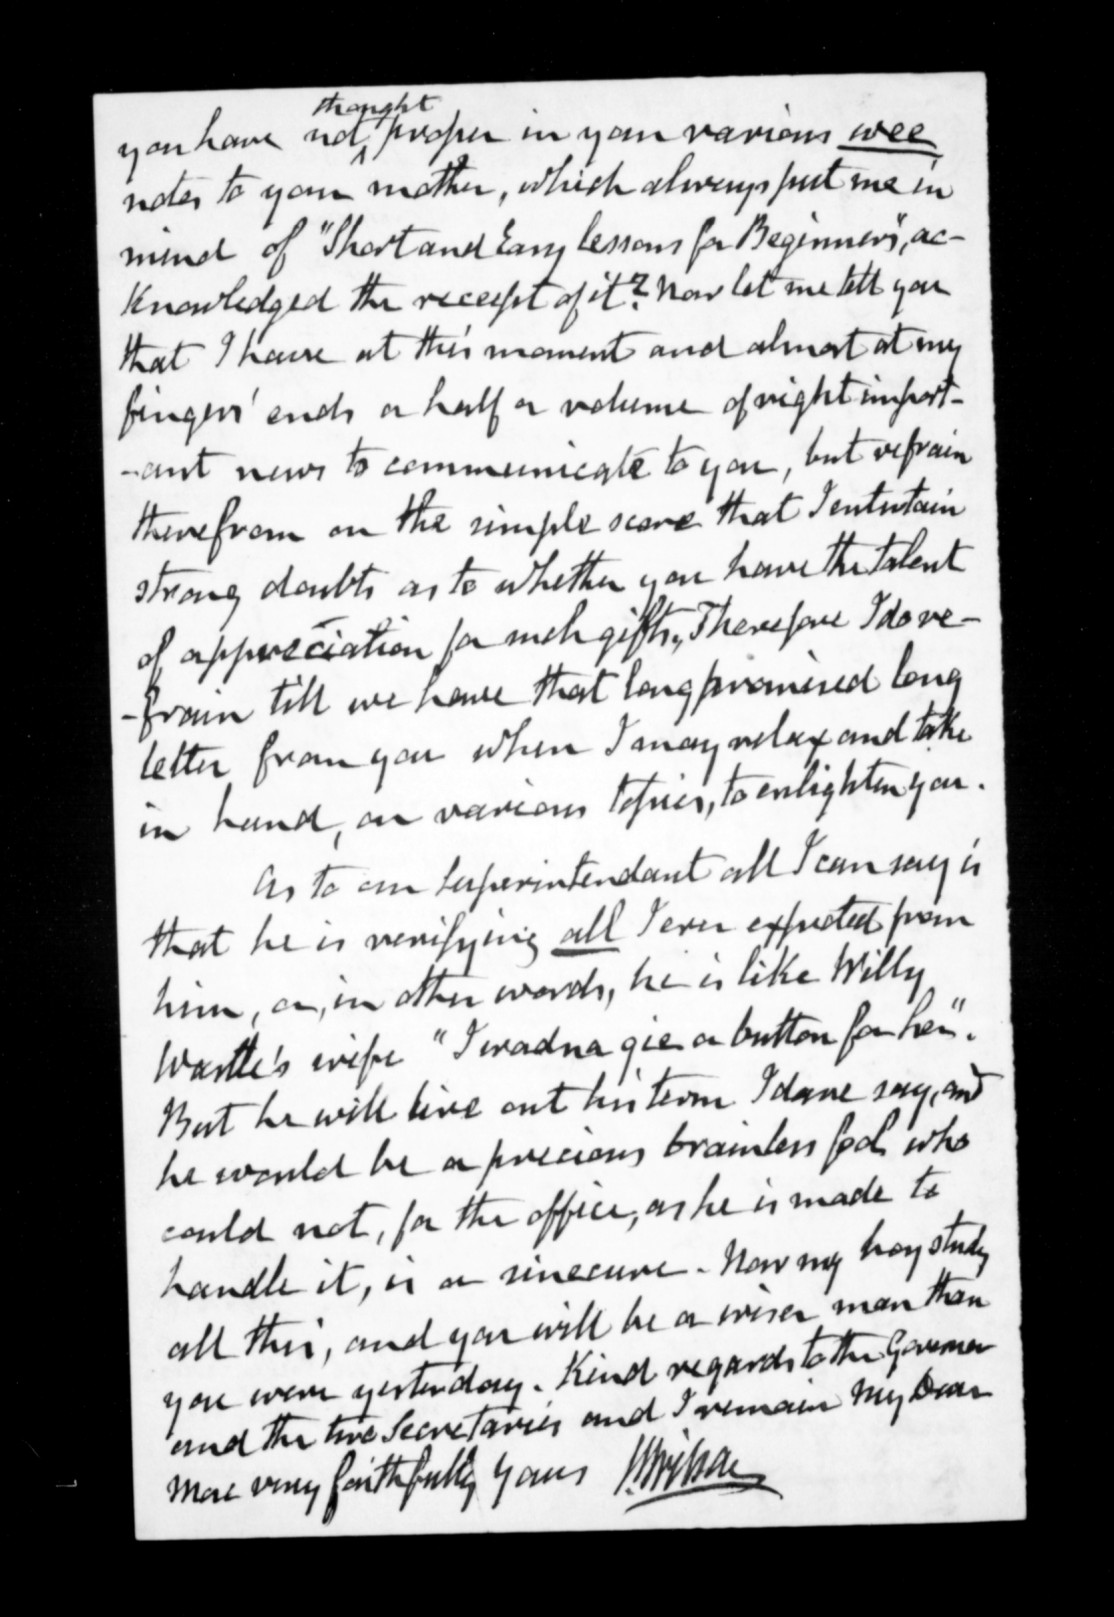 you have not ^thought proper in your various wee
notes to your mother, which always put me in
mind of "Short and Easy lessons for Beginners", ac-
knowledged the receipt of it? Now let me tell you
that I have at this moment and almost at my
fingers' ends a half a volume of right import-
-ant news to communicate to you, but refrain
therefrom on the simple score that I entertain
strong doubts as to whether you have the talent
of appreciation for such gifts, Therefore I do re-
-frain till we have that long promised long
letter from you when I may relax and take
in hand, on various topics, to enlighten you.
As to our Superintendant all I can say is
that he is verifying all I ever expected from
him, or, in other words, he is like Willy
Wastle's wife "I wadna gie a button for her".
But he will live out his term I dare say, and
he would be a precious brainless fool who
could not, for the office, as he is made to
handle it, is a sinecure. Now my boy study
all this, and you will be a wiser man than
you were yesterday. Kind regards to the Governor
and the two Secretaries and I remain My Dear
Mac very faithfully Yours